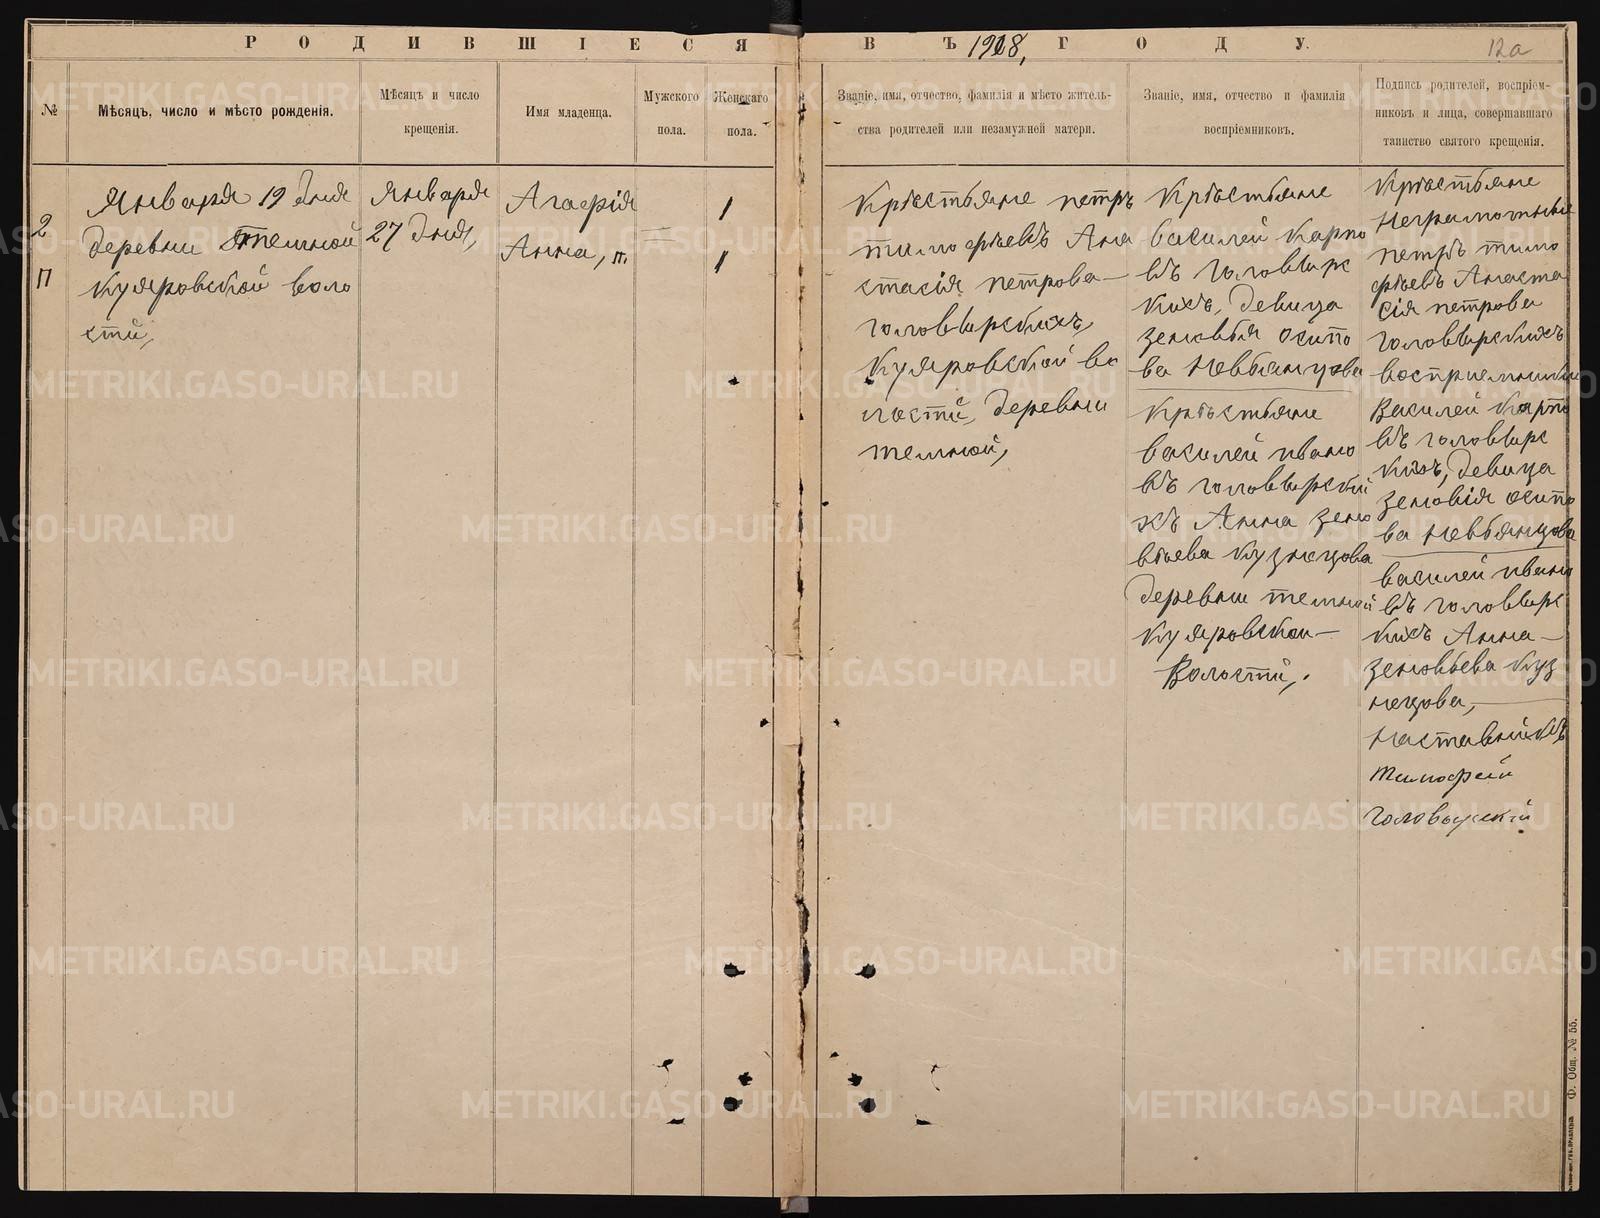 РОДИВШІЕСЯ ВЪ 1918, ГОДУ.
12а
№
Мѣсяцъ, число и мѣсто рожденія.
Мѣсяцъ и число
крещенія.
Имя младенца.
Мужского
пола.
Женскаго
пола.
Званіе, имя, отчество, фамилія и мѣсто житель-
ства родителей или незамужней матери.
Званіе, имя, отчество и фамилія
воспріемниковъ.
Подпись родителей, воспріем-
никовъ и лица, совершавшаго
таинство святого крещенія.
2
П
Января 19 дня
деревни темной
Куяровской воло
сти,
Января
27 дня,
Агафія
Анна, п.
1
1
Крѣстьяне петръ
тимофѣевъ Ана
стасія петрова
головырскихъ,
Куяровской во
лости, деревни
темной,
Крѣстьяне
василей карпо
въ головырс
кихъ, девица
зеновья осипо
ва Невьянцова
Крѣстьяне
василей ивано
въ головырский
хъ Анна зено
вьева кузнецова
деревни темной
куяровской
Волости,.
Крѣстьяне
неграмотные
петръ тимо
фѣевъ Анаста
сія петрова
головырскихъ
восприемники
Василей карпо
въ головырс
кихъ, девица
зеновія осипо
ва Невьянцова
василей ивано
въ головырс
кихъ Анна
зеновьева куз
нецова,
Наставникъ
Тимофей
METRIKI.GASO-URAL.RU
Ф. Общ. № 55.